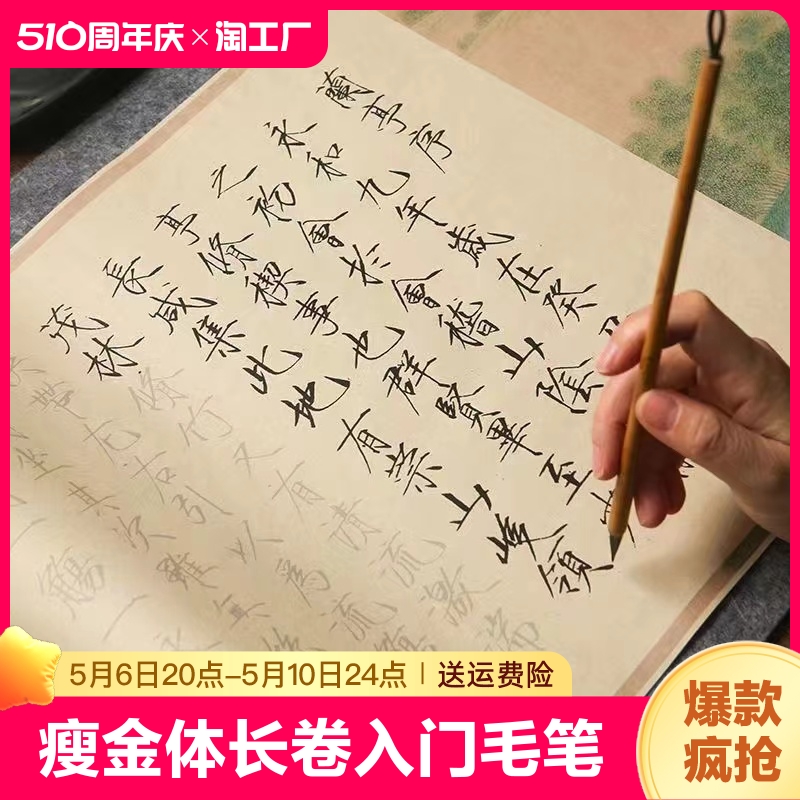 510周年庆×淘工厂
蘭亭序
永和九年歲在癸
之初會於會稽山陰
亭脩禊事也群賢畢至
長咸集此地有崇山峻領
茂林脩竹又有清流激湍
帶左右引以為流
坐其次雖
觴一
5月6日20点-5月10日24点 | 送运费险
瘦金体长卷入门毛笔
爆款
疯抢